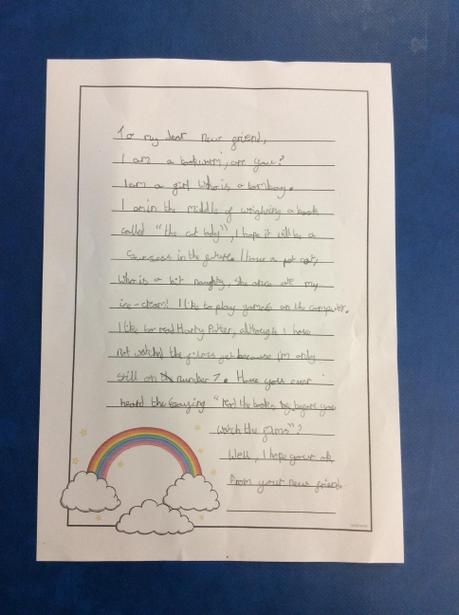 To my dear new friend,
I am a bookworm, are you?
I am a girl who is a tomboy.
I am in the middle of wrighting a book
called "the cat lady", I hope it will be a
sucsess in the future. I have a pet cat,
who is a bit naughty, she once ate my
ice-cream! I like to play games on the computer.
I like to read Harry Potter, although I have
not watched the films yet because i'm only
still on number 7. Have you ever
heard the saying "read the books before you
watch the films"?
Well, I hope your ok
From your new friend